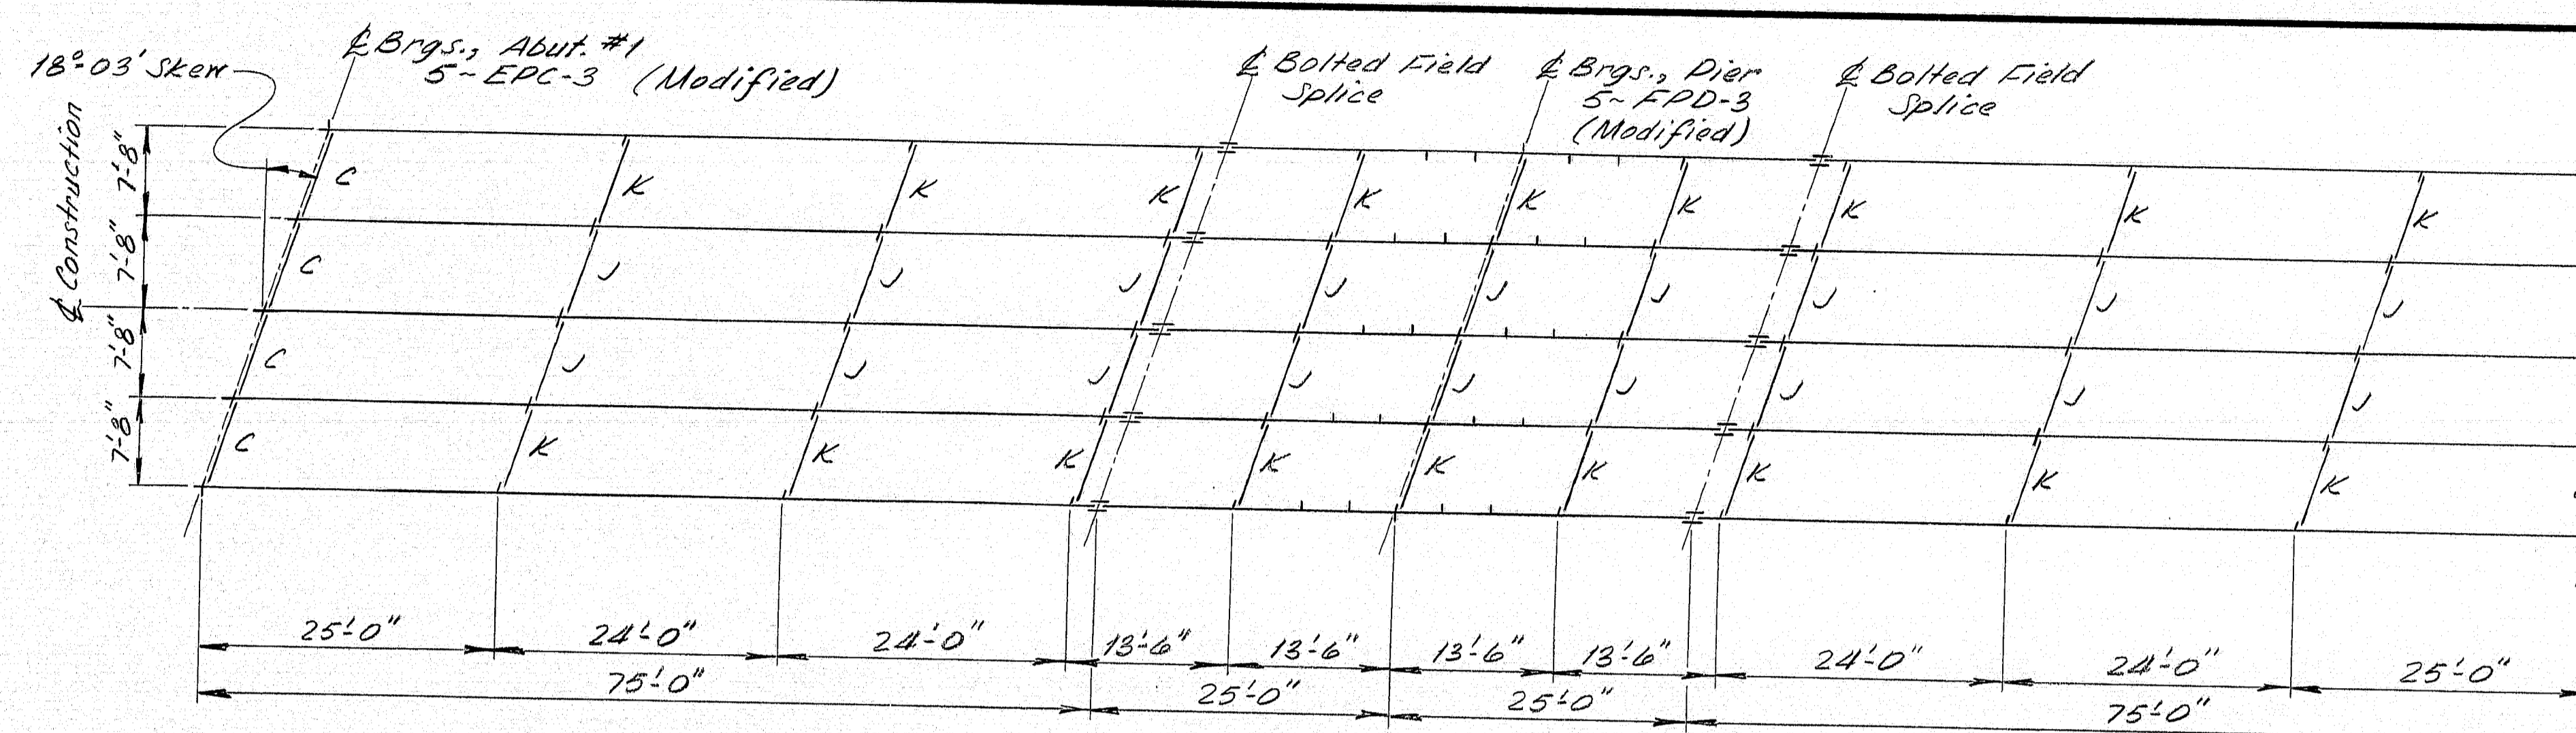 18°-03' Skew
℄ Brgs., Abut. #1
5~ EPC-3 (Modified)
℄ Bolted Field
Splice
℄ Brgs., Pier
5~ FPD-3
(Modified)
℄ Bolted Field
Splice
℄ Construction
7'-8"
7'-8"
7'-8"
7'-8"
C K K K K K K K K K
C J J J J J J J J J
C J J J J J J J J J
C K K K K K K K K K
25'-0" 24'-0" 24'-0" 13'-6" 13'-6" 13'-6" 13'-6" 24'-0" 24'-0" 25'-0"
75'-0" 25'-0" 25'-0" 75'-0"